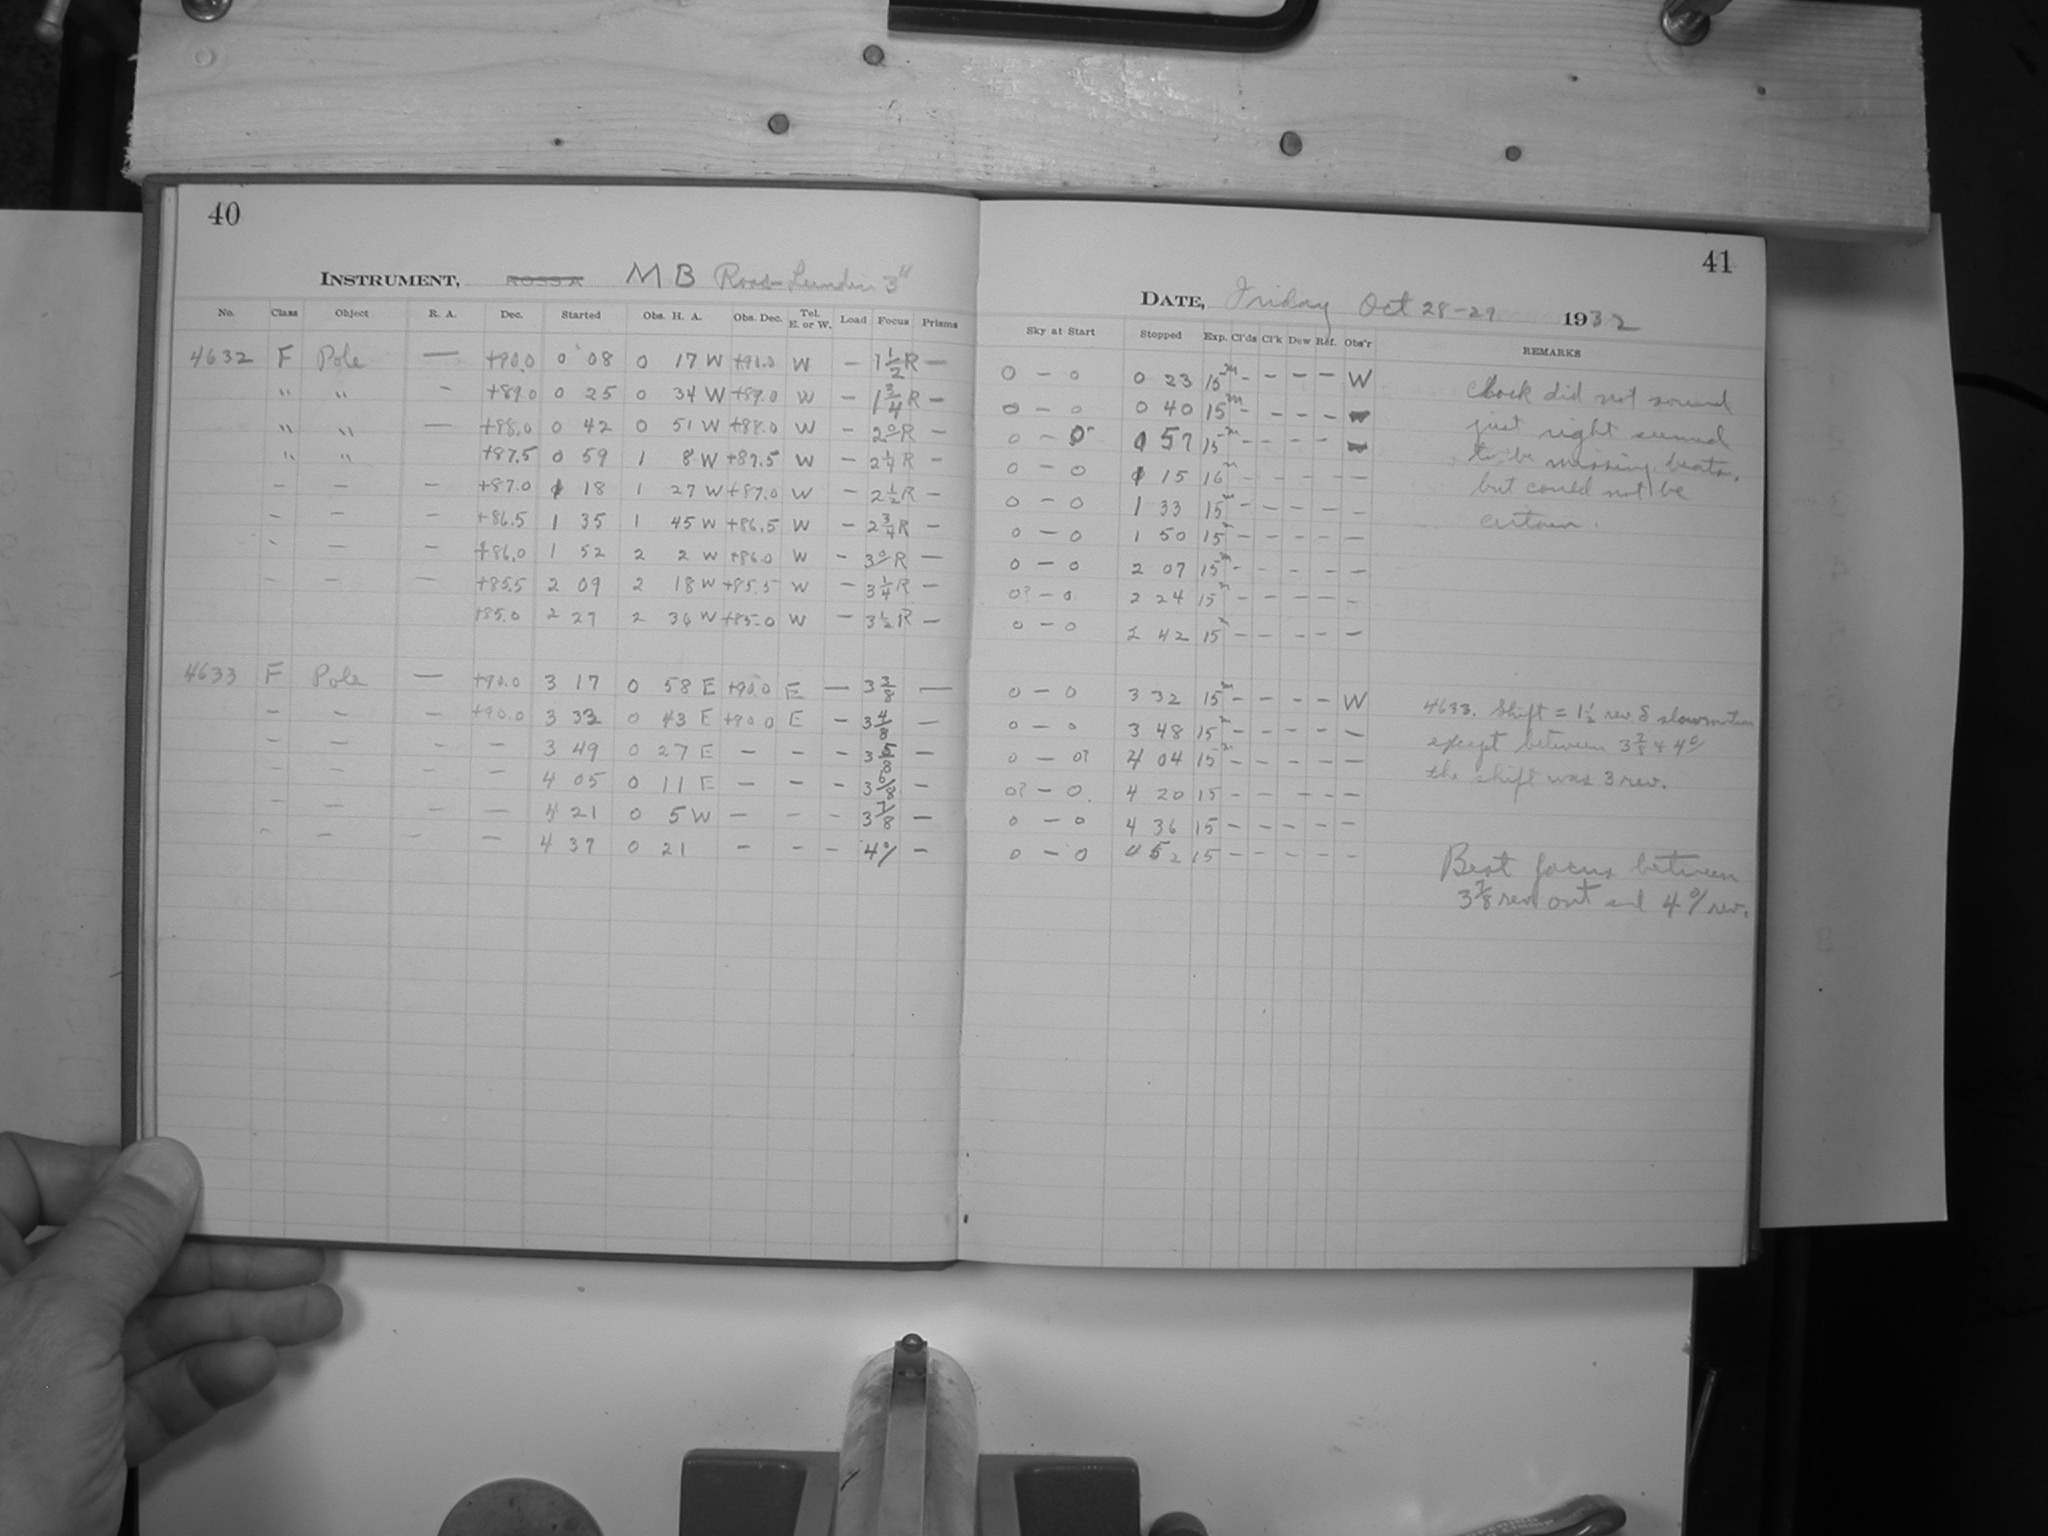 40
INSTRUMENT, ROSS A MB Ross-Lundin 3"
No. Class Object R. A. Dec. Started Obs. H. A. Obs. Dec. Tel. E. or W. Load Focus Prisms
4632 F Pole — +90.0 0 08 0 17 W +90.0 W – 1 1/2 R –
" " – +89.0 0 25 0 34 W +89.0 W – 1 3/4 R –
" " — +88.0 0 42 0 51 W +88.0 W – 2 0/ R –
" " +87.5 0 59 1 8 W +87.5 W – 2 1/4 R –
– – – +87.0 1 18 1 27 W +87.0 W – 2 1/2 R –
– – – +86.5 1 35 1 45 W +86.5 W – 2 3/4 R –
– – – +86.0 1 52 2 2 W +86.0 W – 3 0/ R —
– – — +85.5 2 09 2 18 W +85.5 W – 3 1/4 R –
+85.0 2 27 2 36 W +85.0 W – 3 1/2 R –
4633 F Pole — +90.0 3 17 0 58 E +90.0 E — 3 3/8 —
– – – +90.0 3 33 0 43 E +90.0 E – 3 4/8 –
– – – – 3 49 0 27 E – – – 3 5/8 –
– – – – 4 05 0 11 E – – – 3 6/8 –
– – – – 4 21 0 5 W – – – 3 7/8 –
– – – – 4 37 0 21 – – – 4 0/ –
41
DATE, Friday Oct 28-29 1932
Sky at Start Stopped Exp. Cl'ds Cl'k Dew Ref. Obs'r REMARKS
0 – 0 0 23 15m – – – – W
0 – 0 0 40 15m – – – –
0 – 0 0 57 15m – – – –
0 – 0 1 15 16m – – – – –
0 – 0 1 33 15m – – – – –
0 – 0 1 50 15m – – – – –
0 – 0 2 07 15m – – – – –
0? – 0 2 24 15m – – – – –
0 – 0 2 42 15m – – – – –
Clock did not sound
just right seemed
to be missing beats,
but could not be
certain.
0 – 0 3 32 15m – – – – W
0 – 0 3 48 15m – – – – –
0 – 0? 4 04 15m – – – – –
0? – 0 4 20 15 – – – – –
0 – 0 4 36 15 – – – – –
0 – 0 4 52 15 – – – – –
4633. Shift = 1 1/2 rev δ slow motion
except between 3 7/8 & 4 0/
the shift was 3 rev.
Best focus between
3 7/8 rev out and 4 0/ rev.